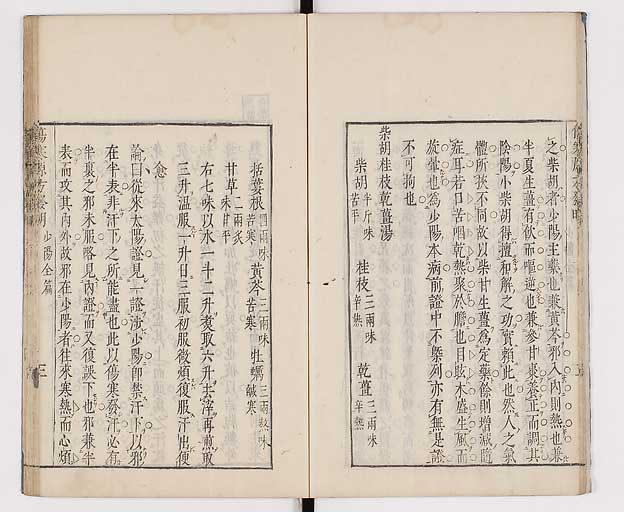 之柴胡者少陽主藥也兼黃芩邪入內則熱也兼
半夏生薑有飲而嘔逆也兼參甘棗養正而調其
陰陽小柴胡得擅和解之功實賴此也然人之氣
體所狀不同故以柴甘生薑為定藥餘則增減隨
症耳若口苦咽乾熱聚於膽也目眩木盛生風而
旋暈也為少陽本病前證中不槩列亦有無是證
不可拘也
柴胡桂枝乾薑湯
柴胡半斤味苦平 桂枝三兩味辛熱 乾薑三兩味辛熱
括蔞根四兩味苦寒 黃芩三兩味苦寒 牡蠣三兩熬味鹹寒
甘草二兩炙味甘平
右七味以水一斗二升煑取六升去滓再煎取
三升溫服一升日三服初服微煩復服汗出便
愈
論曰從來太陽證見一證涉少陽即禁汗下以邪
在半表非汗下之所能盡也此以傷寒發汗必有
半裏之邪未服略見內證而又復誤下也邪兼半
表而攻其內外故邪在少陽者往來寒熱而心煩
少陽全篇 三